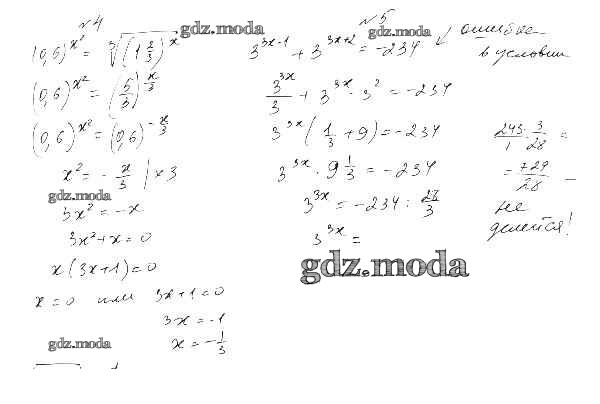 №4
(0,6)^{x²} = ∛(1 2/3)^x
(0,6)^{x²} = (5/3)^{x/3}
(0,6)^{x²} = (0,6)^{-x/3}
x² = - x/3 | ×3
3x² = -x
3x² + x = 0
x(3x+1) = 0
x = 0 или 3x+1 = 0
3x = -1
x = - 1/3
№5
3^{3x-1} + 3^{3x+2} = -234 ошибка
в условии
3^{3x}/3 + 3^{3x} · 3² = -234
3^{3x}(1/3 + 9) = -234
3^{3x} · 9 1/3 = -234
3^{3x} = -234 : 28/3
3^{3x} =
243/1 · 3/28 =
= 729/28 –
не
делется!
gdz.moda
gdz.moda
gdz.moda
gdz.moda
gdz.moda